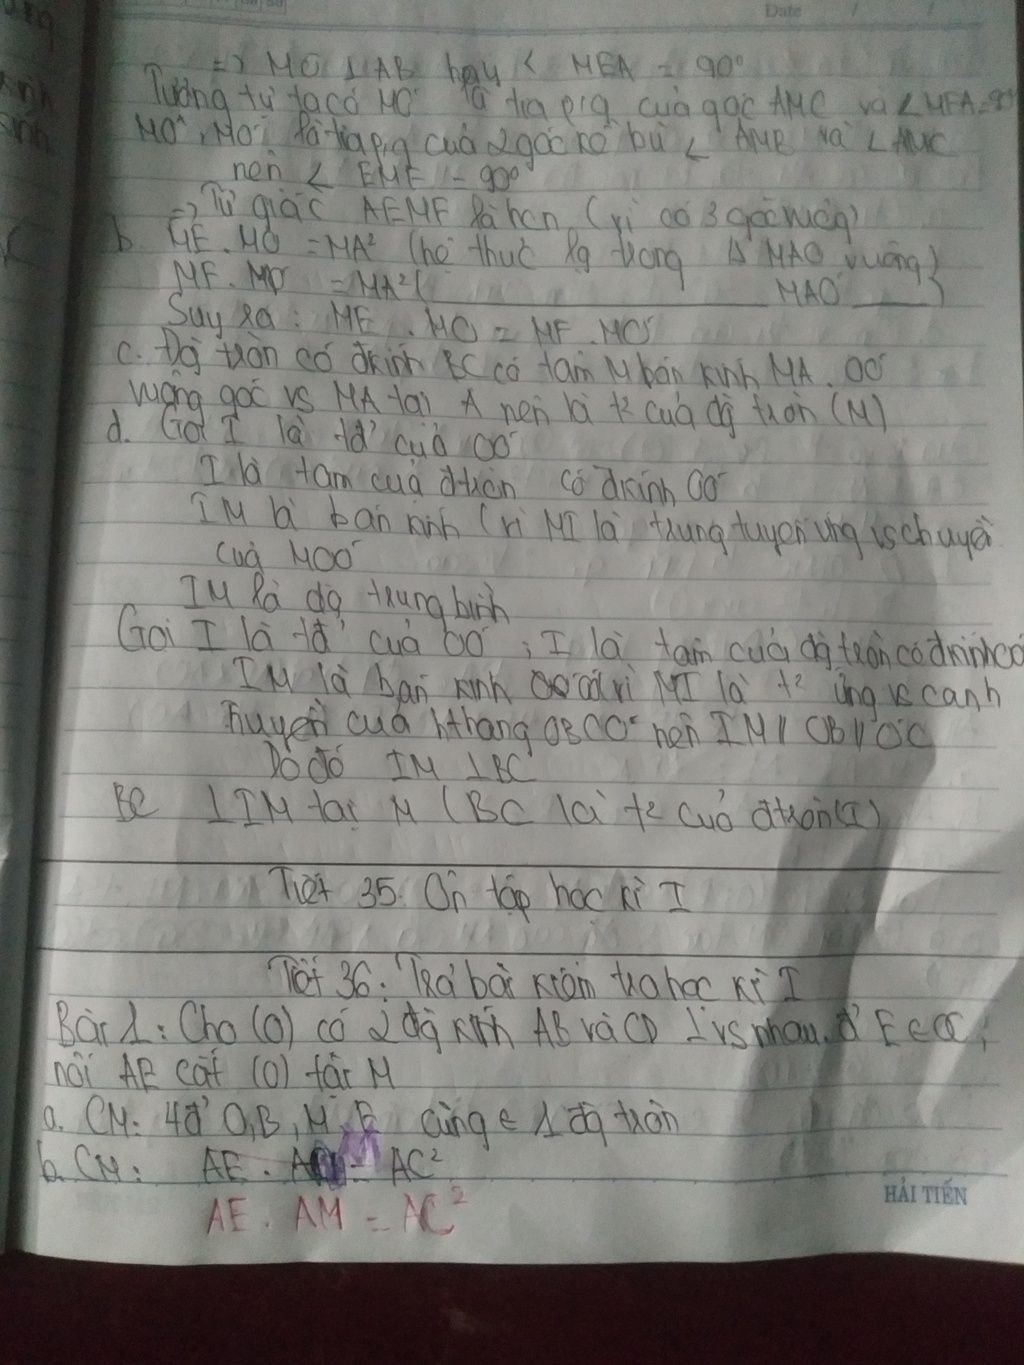 Date / /
=> MO ⊥ AB hay < MEA = 90°
Tương tự ta có MO' là tia p/g của góc AMC và < MFA = 90°
MO, MO' là tia p/g của 2 góc kề bù < AMB và < AMC
nên < EMF = 90°
=> Tứ giác AEMF là hcn (vì có 3 góc vuông)
b. ME . MO = MA² (hệ thức lg trong Δ MAO vuông)
MF . MO' = MA² ( MAO' )
Suy ra : ME . MO = MF . MO'
c. Đg tròn có đkính BC có tâm M bán kính MA . OO'
vuông góc vs MA tại A nên là t² của đg tròn (M)
d. Gọi I là tđ' của OO'
I là tâm của đtròn có đkính OO'
IM là bán kính (vì MI là trung tuyến ứng vs chuyền
của MOO'
IM là đg trung bình
Gọi I là tđ' của OO' ; I là tâm của đg tròn có đkính
IM là bán kính vì MI là t² ứng vs cạnh
huyền của hthang OBCO' nên IM // OB // O'C
Do đó IM ⊥ BC
BC ⊥ IM tại M (BC là t² của đtròn (I)
Tiết 35. Ôn tập học kì I
Tiết 36: Trả bài kiểm tra học kì I
Bài 1: Cho (O) có 2 đg kính AB và CD ⊥ vs nhau. đ' E ∈ OC,
nối AE cắt (O) tại M
a. CM: 4đ' O, B, M, E cùng ∈ 1 đg tròn
b. CM: AE . = AC²
AE . AM = AC²
HẢI TIẾN